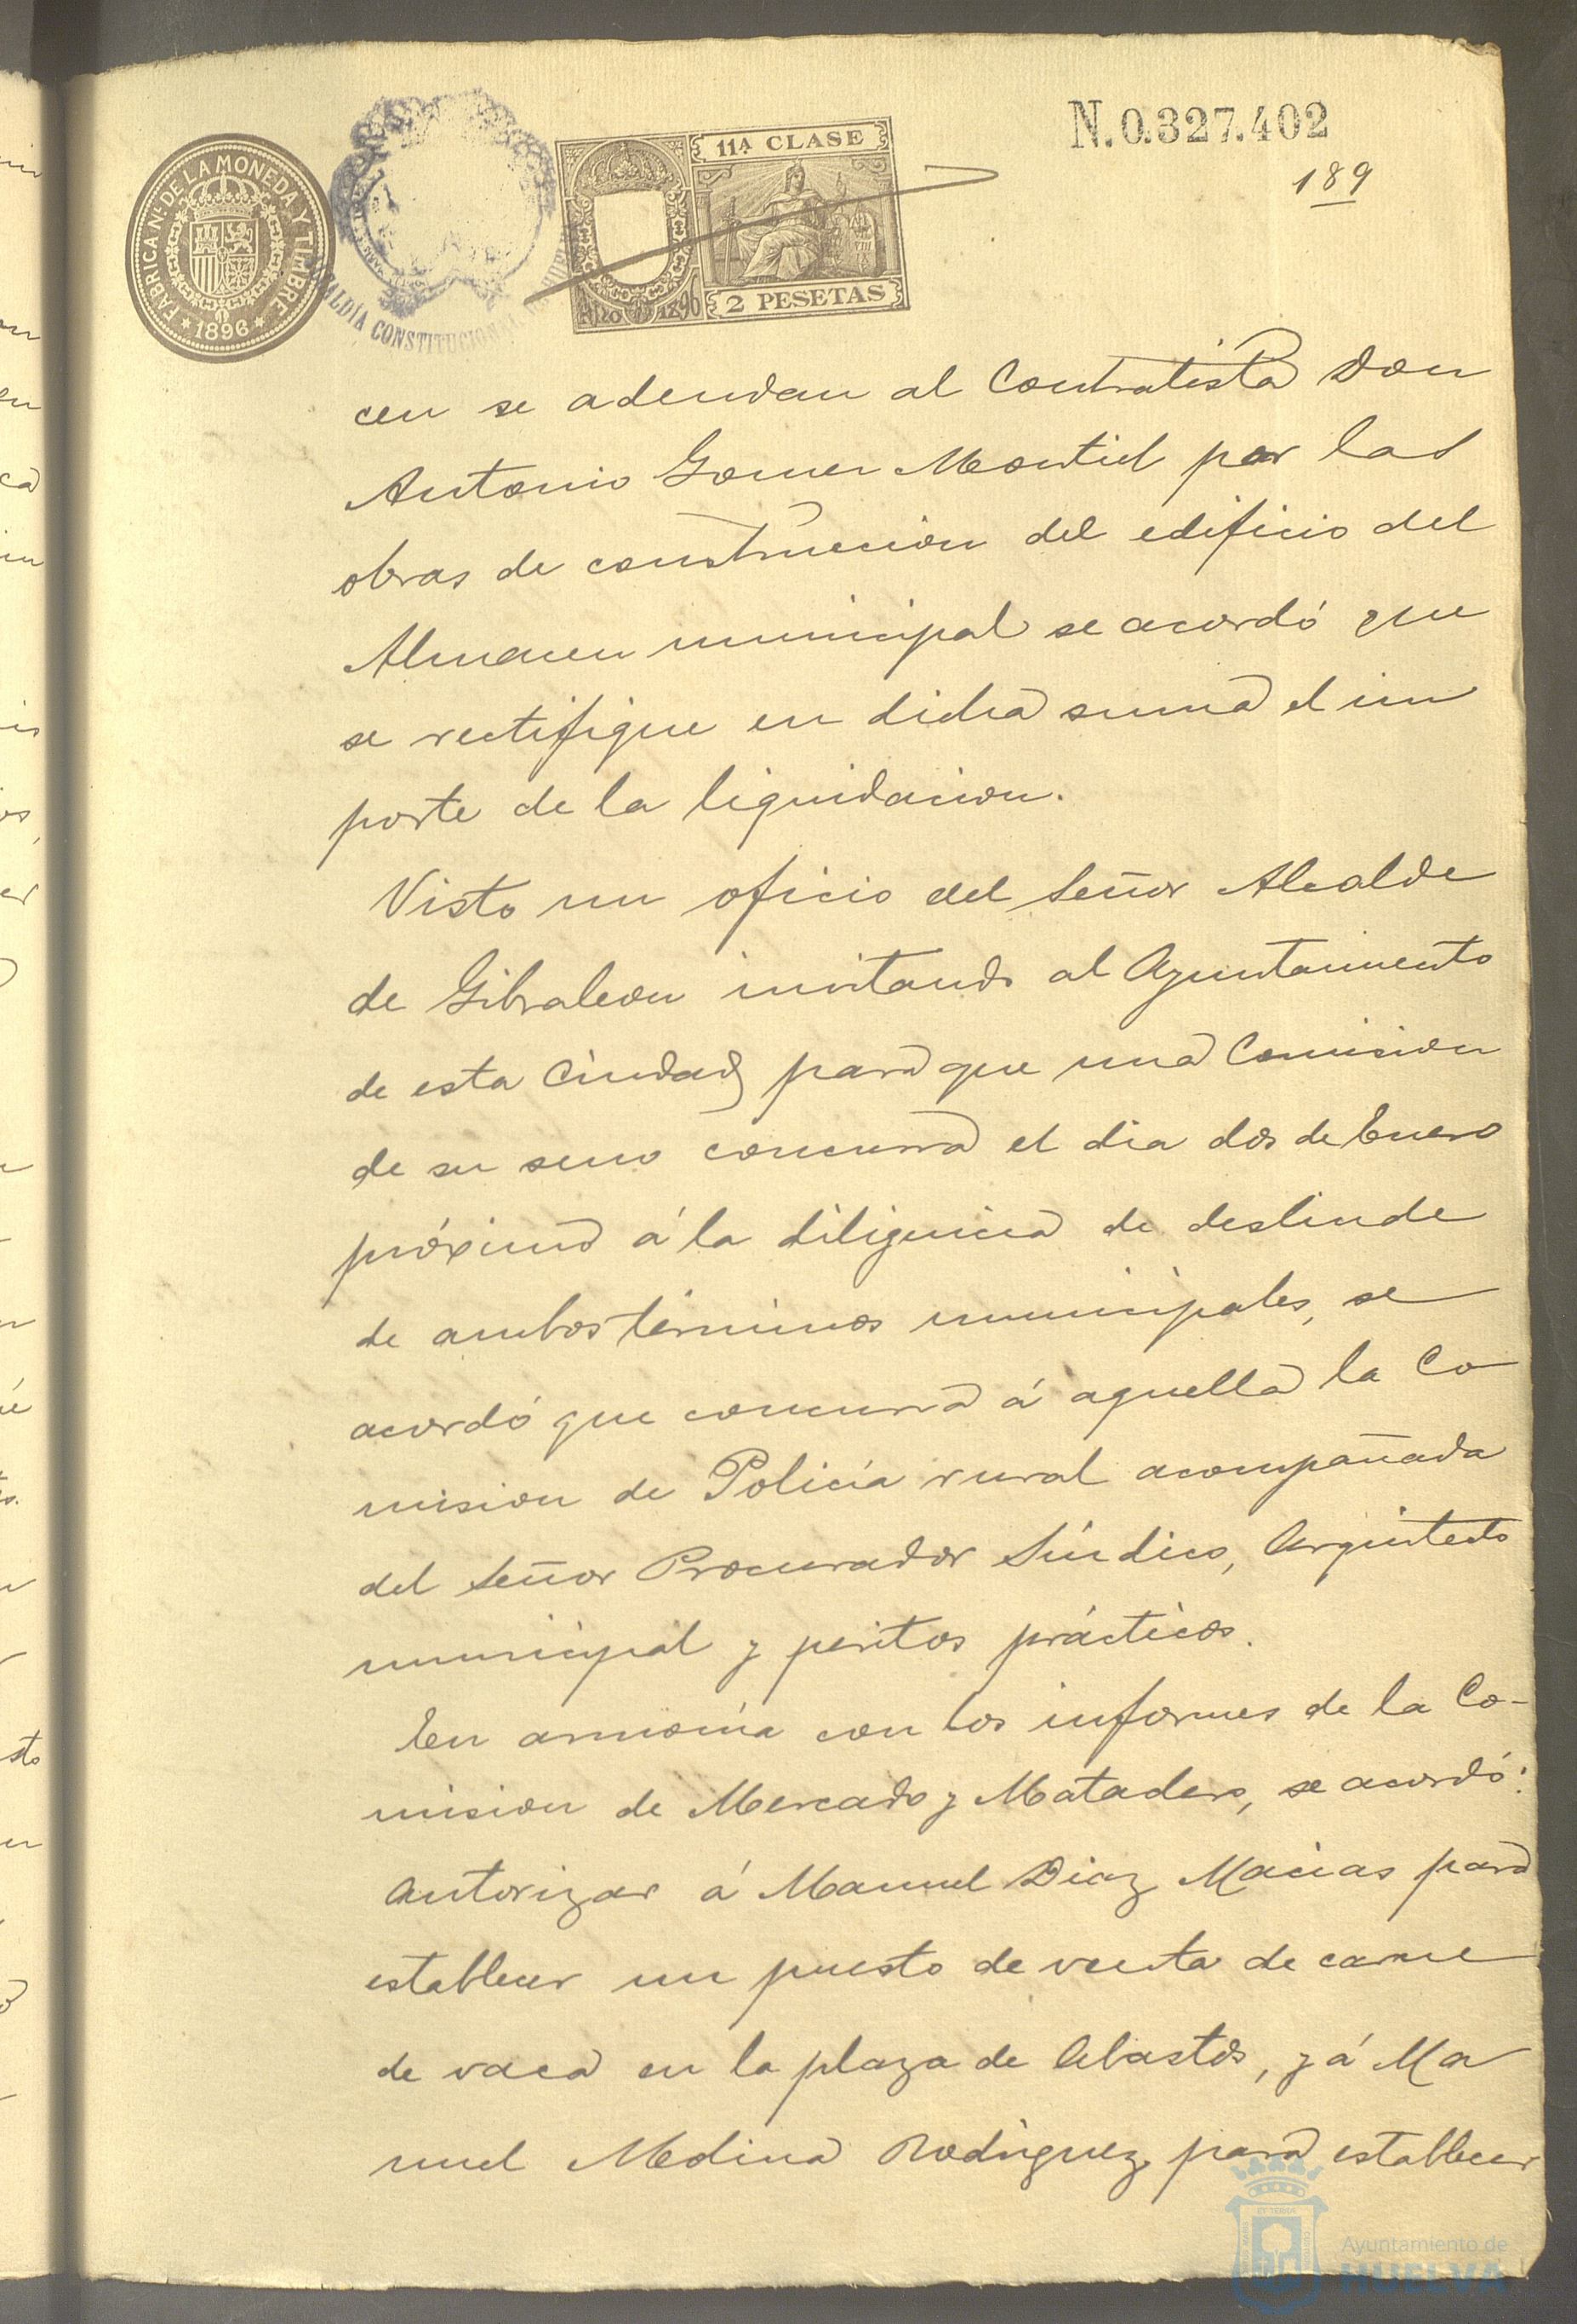 N.0.327.402
189
FÁBRICA NL. DE LA MONEDA Y TIMBRE
* 1896 *
ALCALDÍA CONSTITUCIONAL
11ª CLASE
AÑO 1896
2 PESETAS
cen se adeudan al Contratista Don
Antonio Gomez Montiel por las
obras de construccion del edificio del
Almacen municipal se acordó que
se rectifique en dicha suma el im
porte de la liquidacion.
Visto un oficio del Señor Alcalde
de Gibraleon invitando al Ayuntamiento
de esta Ciudad para que una Comision
de su seno concurra el dia dos de Enero
próximo á la diligencia de deslinde
de ambos términos municipales, se
acordó que concurra á aquella la Co
mision de Policía rural acompañada
del Señor Procurador Síndico, Arquitecto
municipal y peritos prácticos.
En armonía con los informes de la Co-
mision de Mercado y Matadero, se acordó:
Autorizar á Manuel Diaz Macias para
establecer un puesto de venta de carne
de vaca en la plaza de Abastos, y á Ma
nuel Medina Rodriguez para establecer
Ayuntamiento de
HUELVA